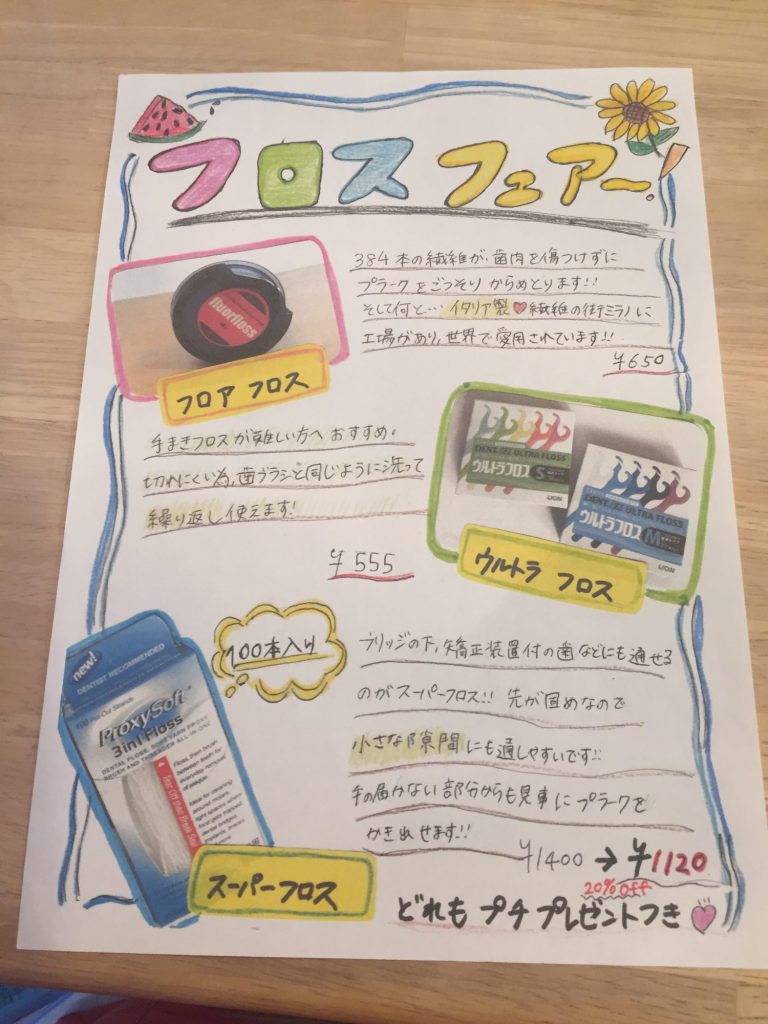 フロス フェアー!
384本の繊維が、歯肉を傷つけずに
プラークをごっそりからめとります!!
そして何と…イタリア製♥繊維の街ミラノに
工場があり、世界で愛用されています!!
¥650
fluorfloss
フロア フロス
手まきフロスが難しい方へおすすめ。
切れにくい為、歯ブラシと同じように洗って
繰り返し使えます!
¥555
DENT.EX ULTRA FLOSS
ウルトラフロス S
LION
DENT.EX ULTRA FLOSS
ウルトラフロス M
LION
ウルトラ フロス
100本入り
new!
DENTIST RECOMMENDED
100 Pre-Cut Strands
ProxySoft
3in1 Floss
DENTAL FLOSS, SOFT YARN PROXY
BRUSH AND THREADER ALL-IN-ONE
Floss, then brush
between teeth for
everyday removal
of plaque
Ideal for cleaning
around
tight spaces where
food gets trapped
dental bridges
implants, braces
スーパーフロス
ブリッジの下、矯正装置付の歯などにも通せる
のがスーパーフロス!! 先が固めなので
小さな隙間にも通しやすいです!!
手の届かない部分からも見事にプラークを
かき出せます!!
¥1400→¥1120
20%off
どれも プチプレゼントつき